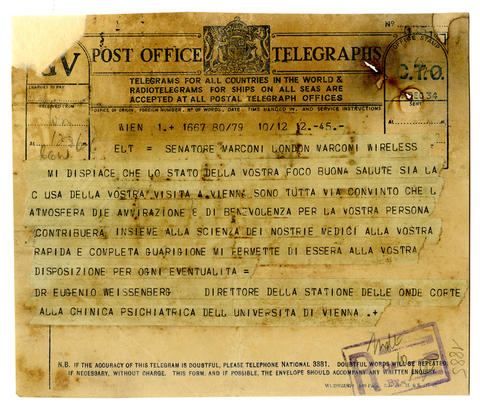 Nº
POST OFFICE TELEGRAPHS
GV
TELEGRAMS FOR ALL COUNTRIES IN THE WORLD &
RADIOTELEGRAMS FOR SHIPS ON ALL SEAS ARE
ACCEPTED AT ALL POSTAL TELEGRAPH OFFICES
OFFICE STAMP
C.T.O.
DEC 34
SENT
CHARGES TO PAY
OFFICE OF ORIGIN, FOREIGN NUMBER, Nº OF WORDS, DATE, TIME HANDED IN, AND SERVICE INSTRUCTIONS
WIEN 1.+ 1667 80/79 10/12 2.-45.-
ELT = SENATORE MARCONI LONDON MARCONI WIRELESS
MI DISPIACE CHE LO STATO DELLA VOSTRA POCO BUONA SALUTE SIA LA
C USA DELLA VOSTRA VISITA A VIENNA SONO TUTTA VIA CONVINTO CHE L
ATMOSFERA DIE AMVIRAZIONE E DI BENEVOLENZA PER LA VOSTRA PERSONA
CONTRIBUERA INSIEME ALLA SCIENZA DEI NOSTRIE MEDICI ALLA VOSTRA
RAPIDA E COMPLETA GUARIGIONE MI PERVETTE DI ESSERA ALLA VOSTRA
DISPOSIZIONE PER OGNI EVENTUALITA =
DR EUGENIO WEISSENBERG DIRETTORE DELLA STATIONE DELLE ONDE CORTE
ALLA CHINICA PSICHIATRICA DELL UNIVERSITA DI VIENNA .+
N.B. IF THE ACCURACY OF THIS TELEGRAM IS DOUBTFUL, PLEASE TELEPHONE NATIONAL 3381. DOUBTFUL WORDS WILL BE REPEATED,
IF NECESSARY, WITHOUT CHARGE. THIS FORM, AND IF POSSIBLE, THE ENVELOPE SHOULD ACCOMPANY ANY WRITTEN ENQUIRY.
1885